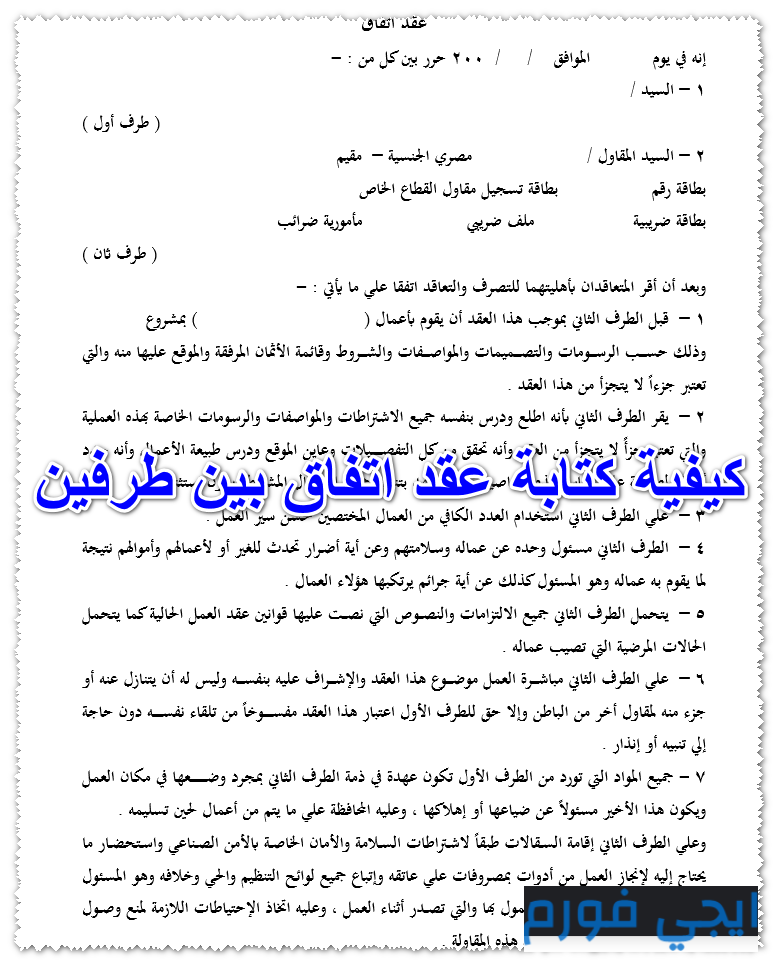 عقد اتفاق
إنه في يوم الموافق / / ٢٠٠ حرر بين كل من : –
١ – السيد /
( طرف أول )
٢ – السيد المقاول / مصري الجنسية – مقيم
بطاقة رقم بطاقة تسجيل مقاول القطاع الخاص
بطاقة ضريبية ملف ضريبي مأمورية ضرائب
( طرف ثان )
وبعد أن أقر المتعاقدان بأهليتهما للتصرف والتعاقد اتفقا علي ما يأتي : –
١ – قبل الطرف الثاني بموجب هذا العقد أن يقوم بأعمال ( ) بمشروع
وذلك حسب الرسومات والتصميمات والمواصفات والشروط وقائمة الأثمان المرفقة والموقع عليها منه والتي
تعتبر جزءاً لا يتجزأ من هذا العقد .
٢ – يقر الطرف الثاني بأنه اطلع ودرس بنفسه جميع الاشتراطات والمواصفات والرسومات الخاصة بهذه العملية
والتي تعتبر جزأً لا يتجزأ من العقد وأنه تحقق من كل التفصيلات وعاين الموقع ودرس طبيعة الأعمال وأنه
كيفية كتابة عقد اتفاق بين طرفين
٣ – علي الطرف الثاني استخدام العدد الكافي من العمال المختصين حسن سير العمل .
٤ – الطرف الثاني مسئول وحده عن عماله وسلامتهم وعن أية أضرار تحدث للغير أو لأعمالهم وأموالهم نتيجة
لما يقوم به عماله وهو المسئول كذلك عن أية جرائم يرتكبها هؤلاء العمال .
٥ – يتحمل الطرف الثاني جميع الالتزامات والنصوص التي نصت عليها قوانين عقد العمل الحالية كما يتحمل
الحالات المرضية التي تصيب عماله .
٦ – علي الطرف الثاني مباشرة العمل موضوع هذا العقد والإشراف عليه بنفسه وليس له أن يتنازل عنه أو
جزء منه لمقاول أخر من الباطن وإلا حق للطرف الأول اعتبار هذا العقد مفسوخاً من تلقاء نفسه دون حاجة
إلي تنبيه أو إنذار .
٧ – جميع المواد التي تورد من الطرف الأول تكون عهدة في ذمة الطرف الثاني بمجرد وضعها في مكان العمل
ويكون هذا الأخير مسئولاً عن ضياعها أو إهلاكها ، وعليه المحافظة علي ما يتم من أعمال لحين تسليمه .
وعلي الطرف الثاني إقامة السقالات طبقاً لاشتراطات السلامة والأمان الخاصة بالأمن الصناعي واستحضار ما
يحتاج إليه لإنجاز العمل من أدوات بمصروفات علي عاتقه وإتباع جميع لوائح التنظيم والحي وخلافه وهو المسئول
بها والتي تصدر أثناء العمل ، وعليه اتخاذ الإحتياطات اللازمة لمنع وصول
هذه المقاولة .
ايجي فورم